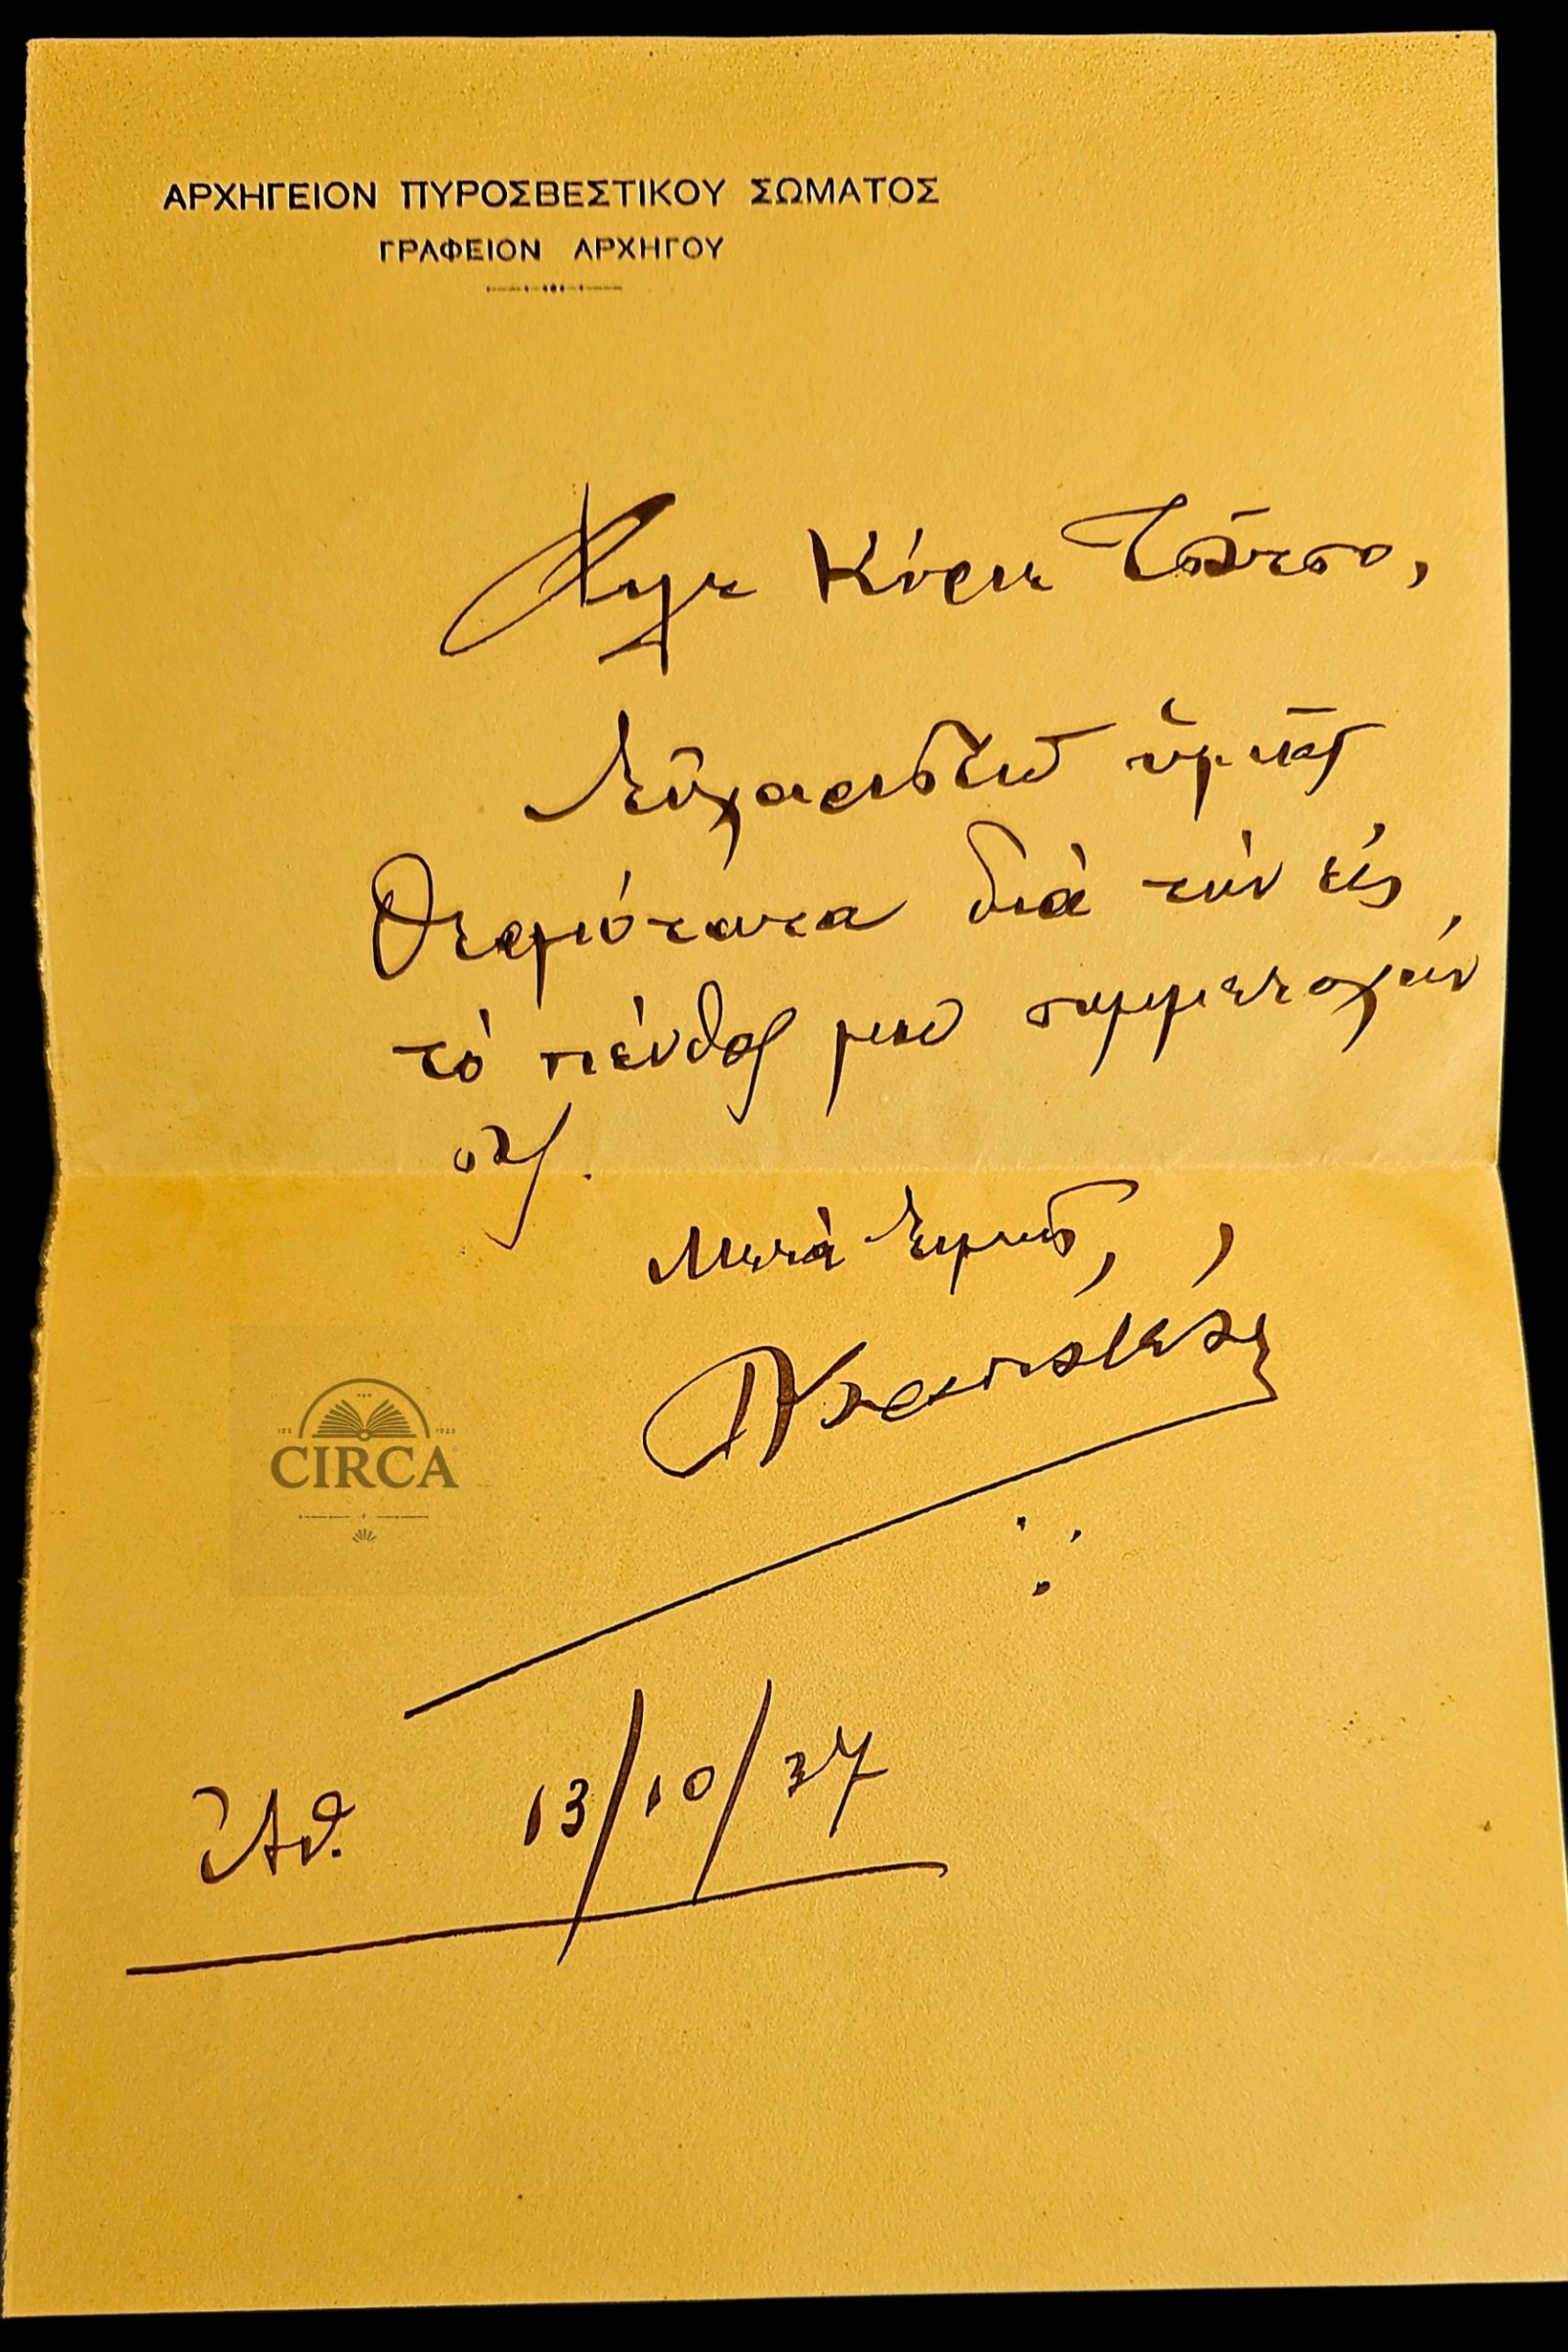 ΑΡΧΗΓΕΙΟΝ ΠΥΡΟΣΒΕΣΤΙΚΟΥ ΣΩΜΑΤΟΣ
ΓΡΑΦΕΙΟΝ ΑΡΧΗΓΟΥ
Κύριε
Εὐχαριστῶ ὑμᾶς
θερμότατα διὰ τὴν εἰς
τὸ πένθος μου συμμετοχήν
σας.
Μετὰ τιμῆς,
CIRCA
Ἀθ. 13/10/37